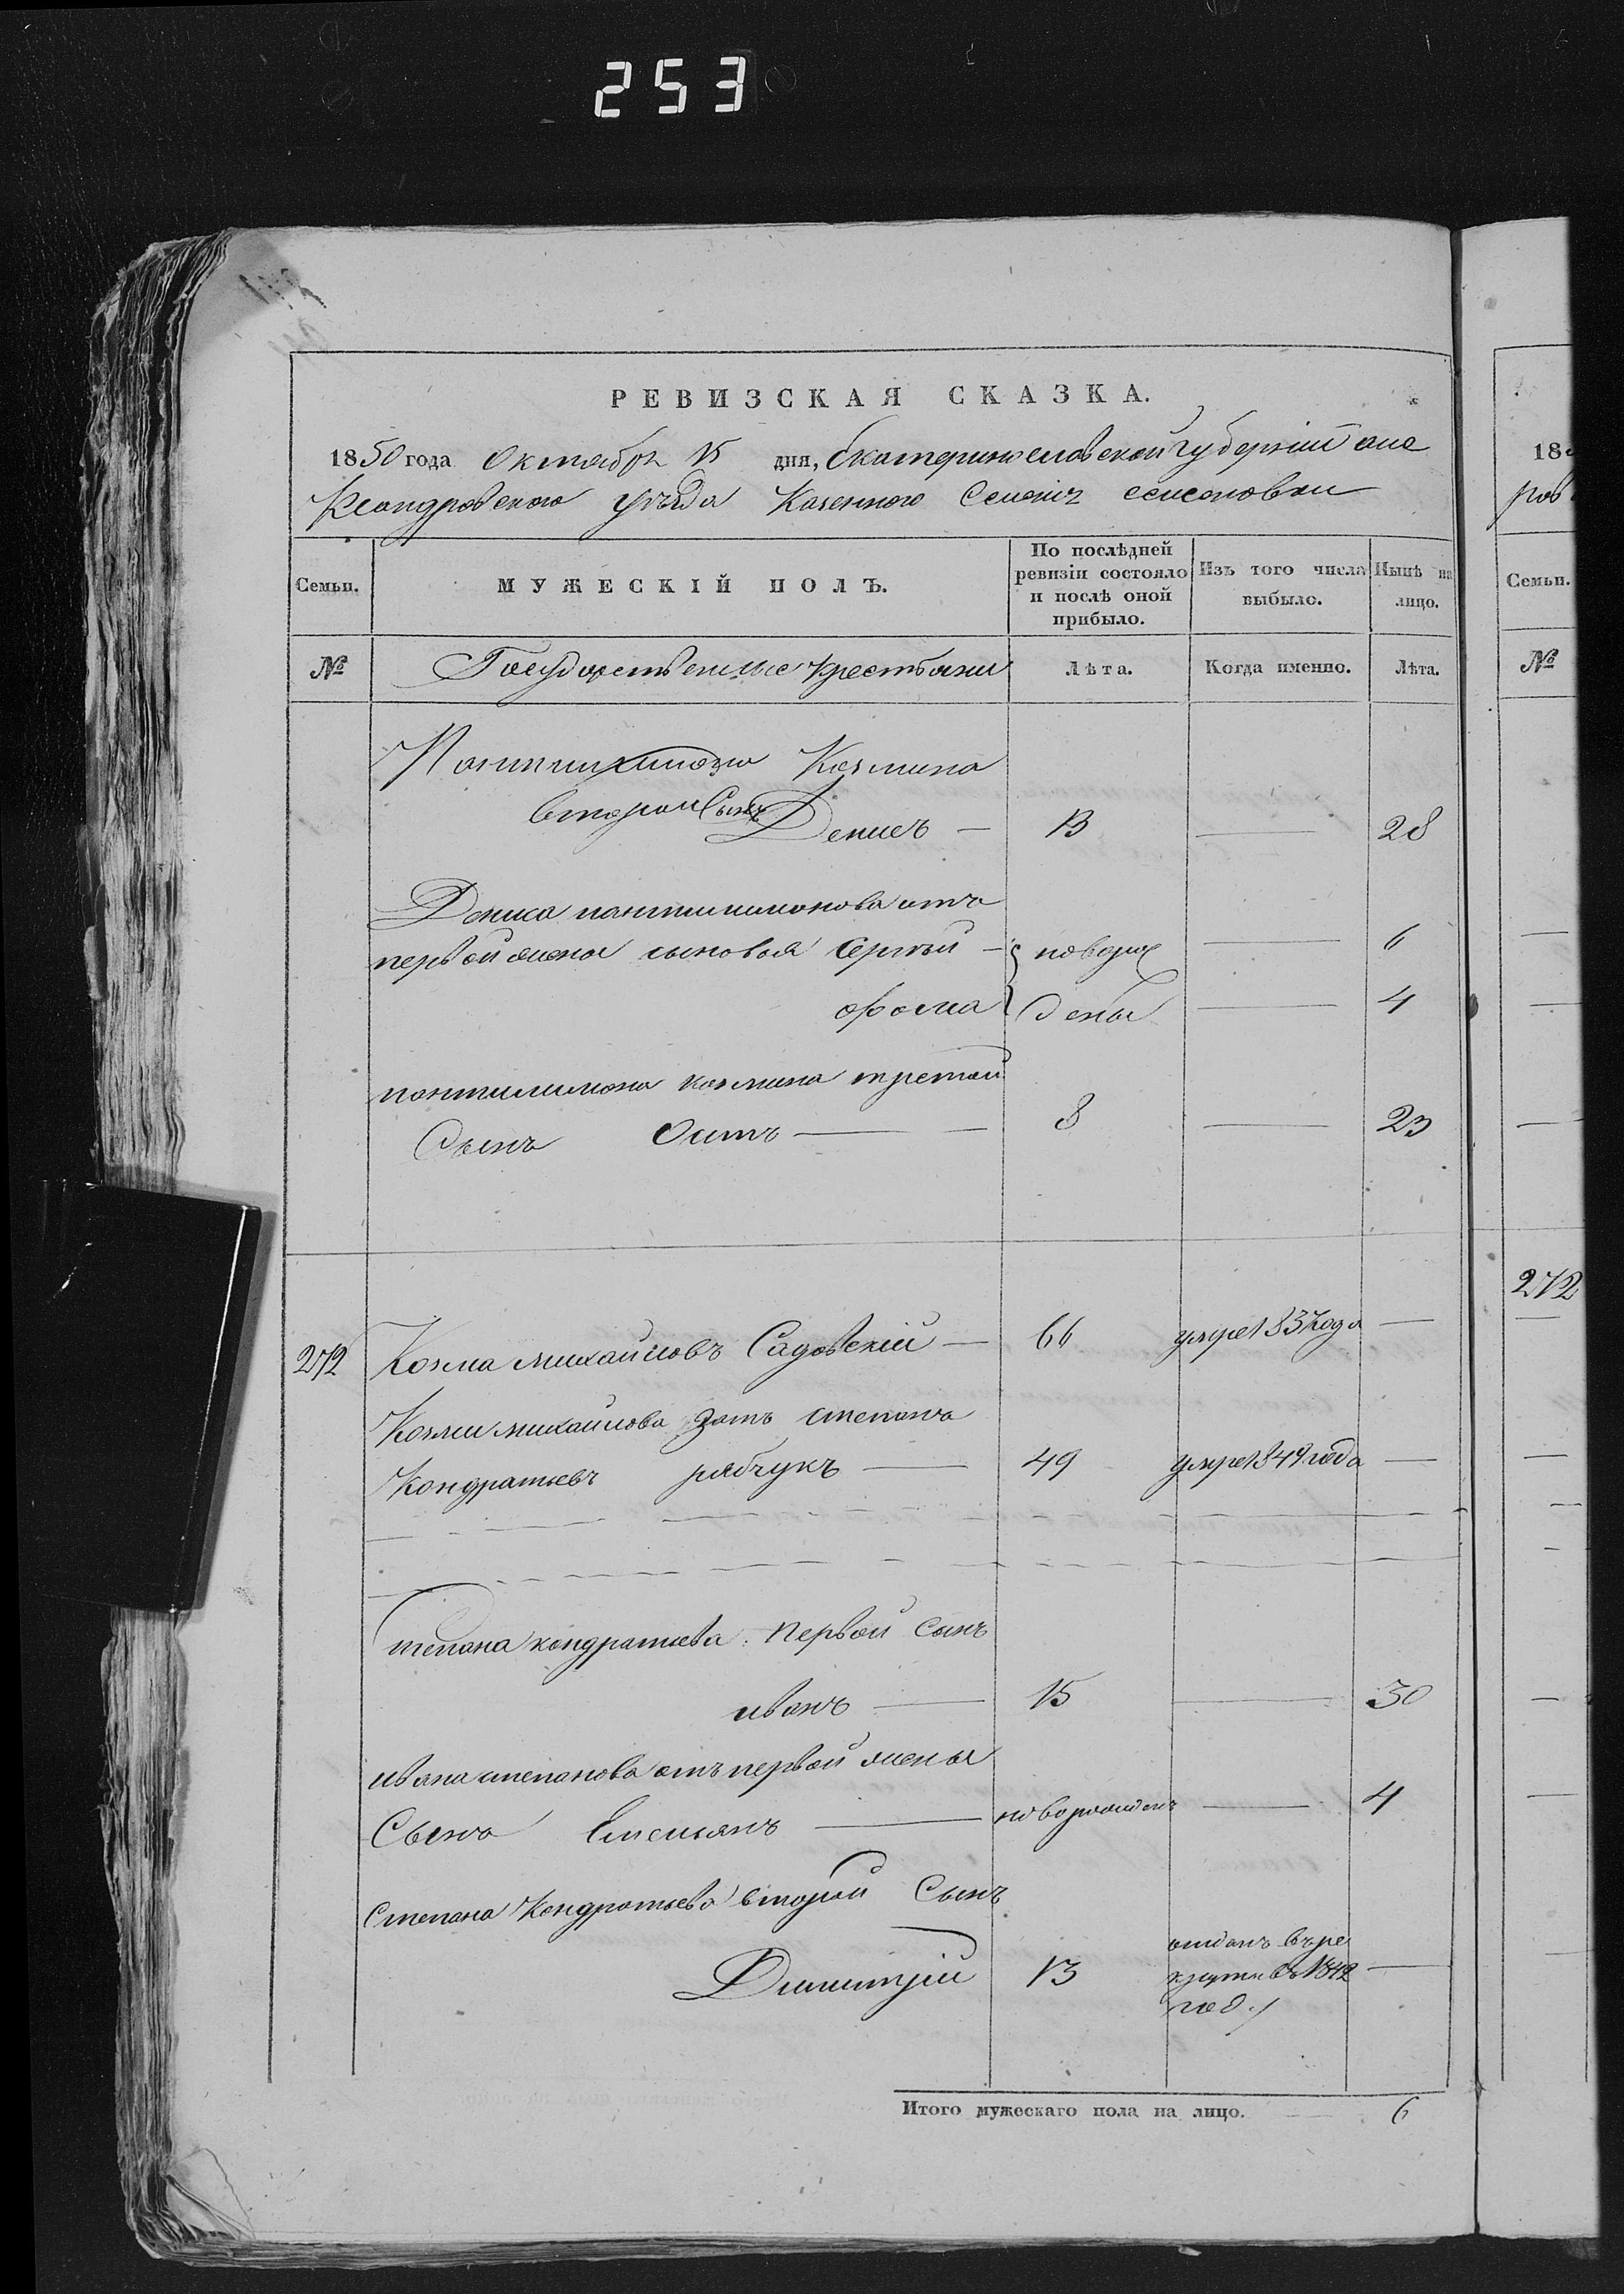 253
РЕВИЗСКАЯ СКАЗКА.
1850 года Октября 15 дня, Екатеринославской губерніи але
ксандровского уѣзда Казенного Селенія
Семьи.
МУЖЕСКІЙ ПОЛЪ.
По послѣдней ревизіи состояло и послѣ оной прибыло.
Изъ того числа выбыло.
Нынѣ на лицо.
№ Государственные крестьяни Лѣта. Когда именно. Лѣта.
Пантилимона Козмина
второй Сынъ Денисъ — 13 — 28
Дениса пантилимонова отъ
первой жены сыновья Сергѣй — новорож — 6
фома дены — 4
пантилимона козмина третой
Сынъ Осипъ — 8 — 23
272 Козма михайловъ Садовскій — 66 умре 1837 года —
Козми михайлова зять степанъ
Кондратьевъ рябчукъ — 49 умре 1849 года —
Степана кондратьева первой сынъ
иванъ — 15 — 30
ивана степанова отъ первой жены
Сынъ Емельянъ — новорожденъ — 4
Степана Кондратьева второй Сынъ
Димитрій 13 отданъ въ ре
круты въ 1842 —
году
Итого мужескаго пола на лицо. 6
18
ров
Семьи.
№
272